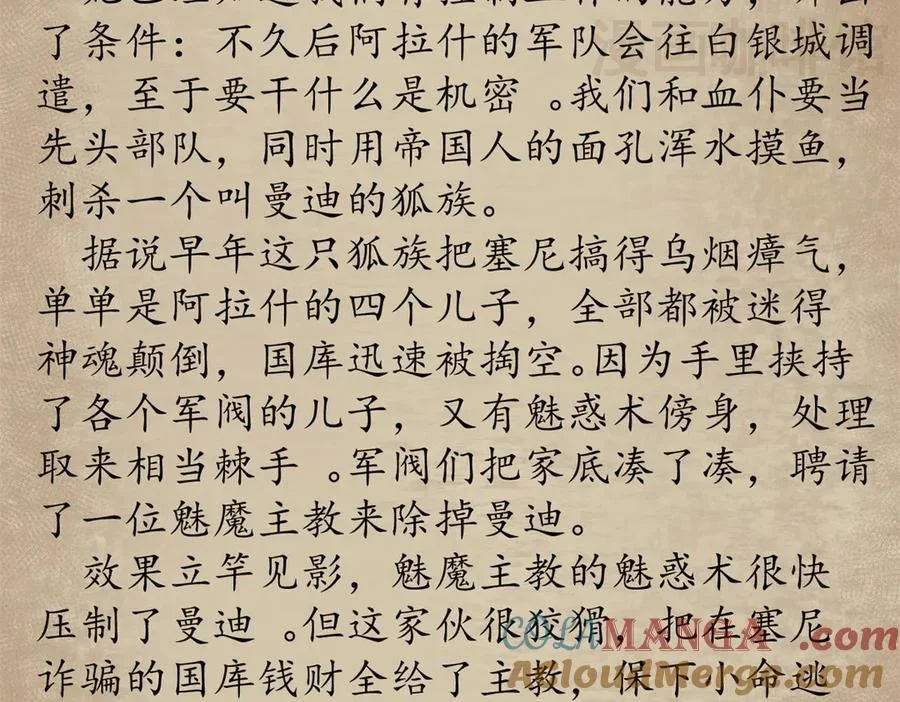 了条件：不久后阿拉什的军队会往白银城调
遣，至于要干什么是机密。我们和血仆要当
先头部队，同时用帝国人的面孔浑水摸鱼，
刺杀一个叫曼迪的狐族。
据说早年这只狐族把塞尼搞得乌烟瘴气，
单单是阿拉什的四个儿子，全部都被迷得
神魂颠倒，国库迅速被掏空。因为手里挟持
了各个军阀的儿子，又有魅惑术傍身，处理
取来相当棘手。军阀们把家底凑了凑，聘请
了一位魅魔主教来除掉曼迪。
效果立竿见影，魅魔主教的魅惑术很快
压制了曼迪。但这家伙很狡猾，把在塞尼
诈骗的国库钱财全给了主教，保下小命逃
COLAMANGA.com
AcloudMerge.com